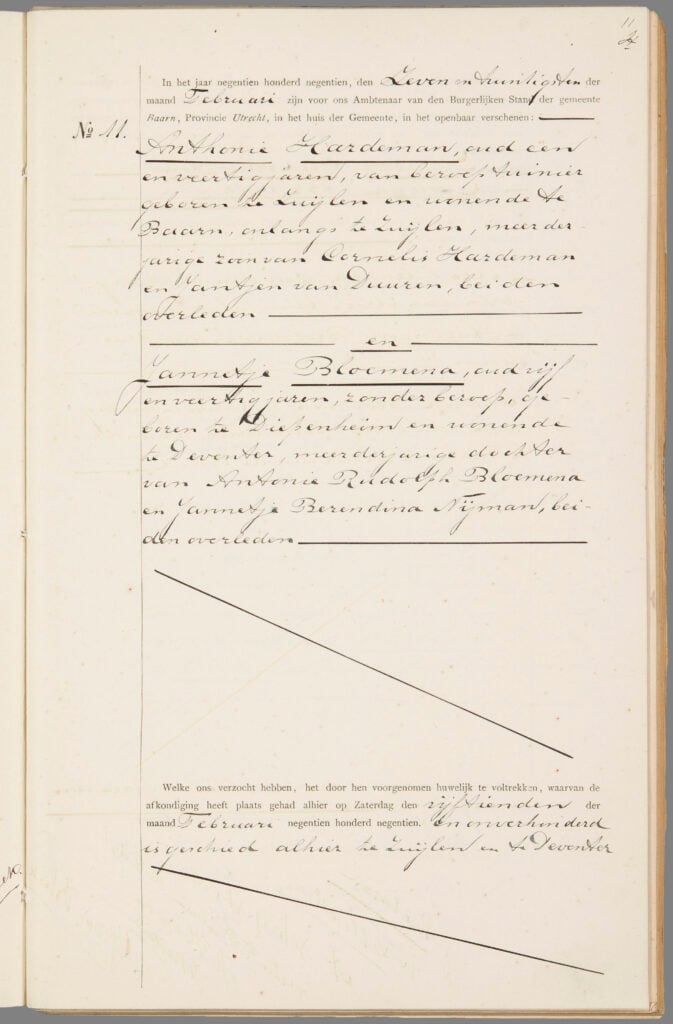 11
In het jaar negentien honderd negentien, den Zeven en twintigsten der
maand Februari zijn voor ons Ambtenaar van den Burgerlijken Stand der gemeente
Baarn, Provincie Utrecht, in het huis der Gemeente, in het openbaar verschenen:
No 11.
Anthonie Hardeman, oud een
en veertig jaren, van beroep tuinier
geboren te Zuijlen en wonende te
Baarn, onlangs te Zuijlen, meerder-
jarige zoon van Cornelis Hardeman
en Jantjen van Duuren, beiden
overleden
en
Jannetje Bloemena, oud vijf
en veertig jaren, zonder beroep, ge-
boren te Diepenheim en wonende
te Deventer, meerderjarige dochter
van Antonie Rudolph Bloemena
en Jannetje Berendina Nijman, bei-
den overleden
Welke ons verzocht hebben, het door hen voorgenomen huwelijk te voltrekken, waarvan de
afkondiging heeft plaats gehad alhier op Zaterdag den vijftienden der
maand Februari negentien honderd negentien. En onverhinderd
is geschied alhier te Zuijlen en te Deventer